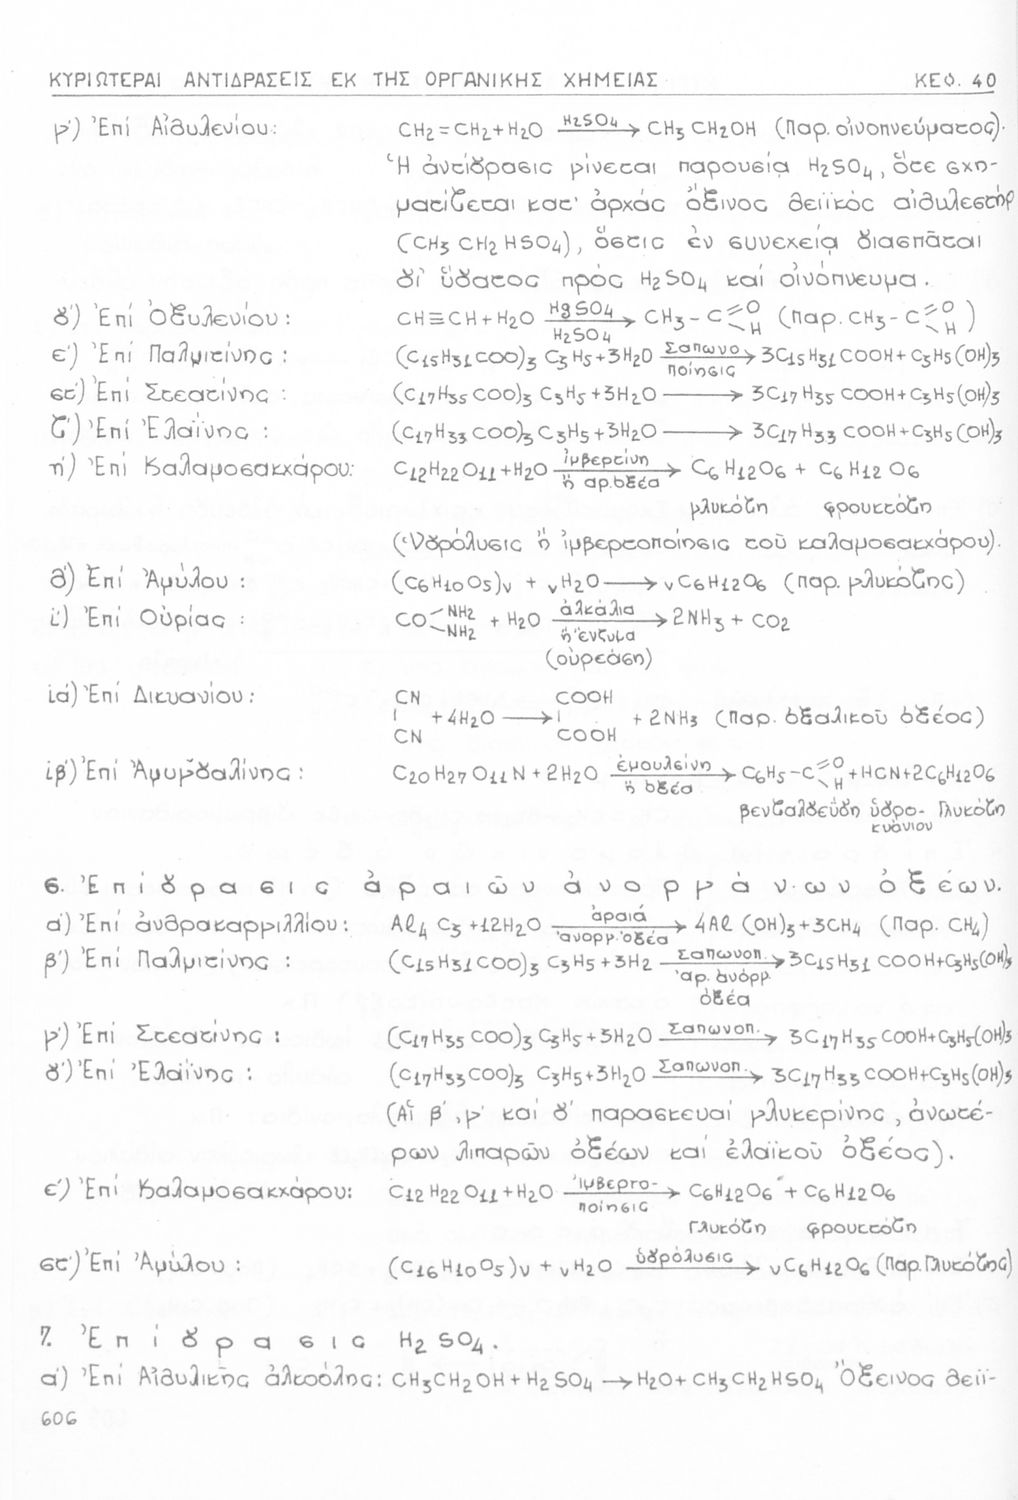 ΚΥΡΙΩΤΕΡΑΙ ΑΝΤΙΔΡΑΣΕΙΣ ΕΚ ΤΗΣ ΟΡΓΑΝΙΚΗΣ ΧΗΜΕΙΑΣ ΚΕΦ. 40
γ') Ἐπί Αἰθυλενίου: CH2=CH2+H2O —H2SO4→ CH3CH2OH (Παρ. οἰνοπνεύματος).
Ἡ ἀντίδρασις γίνεται παρουσίᾳ H2SO4, ὅτε σχη-
ματίζεται κατ' ἀρχάς ὄξινος θειϊκός αἰθυλεστήρ
(CH3 CH2 HSO4), ὅστις ἐν συνεχείᾳ διασπᾶται
δι' ὕδατος πρός H2SO4 καί οἰνόπνευμα.
δ') Ἐπί Ὀξυλενίου: CH≡CH+H2O —HgSO4 / H2SO4→ CH3-C=O-H (Παρ. CH3-C=O-H)
ε') Ἐπί Παλμιτίνης: (C15H31COO)3 C3H5+3H2O —Σαπωνο / ποίησις→ 3C15H31COOH+C3H5(OH)3
στ') Ἐπί Στεατίνης: (C17H35COO)3 C3H5+3H2O → 3C17H35COOH+C3H5(OH)3
ζ') Ἐπί Ἐλαΐνης: (C17H33COO)3 C3H5+3H2O → 3C17H33COOH+C3H5(OH)3
η') Ἐπί Καλαμοσακχάρου: C12H22O11+H2O —ἰμβερτίνη / ἤ αρ. ὀξέα→ C6H12O6 + C6H12O6
γλυκόζη φρουκτόζη
(Ὑδρόλυσις ἤ ἰμβερτοποίησις τοῦ καλαμοσακχάρου).
θ') Ἐπί Ἀμύλου: (C6H10O5)ν + νH2O → νC6H12O6 (παρ. γλυκόζης)
ι') Ἐπί Οὐρίας: CO NH2 NH2 + H2O —ἀλκάλια / ἤ ἔνζυμα→ 2NH3 + CO2
(οὐρεάση)
ια') Ἐπί Δικυανίου: CN COOH
| +4H2O → | + 2NH3 (Παρ. ὀξαλικοῦ ὀξέος)
CN COOH
ιβ') Ἐπί Ἀμυγδαλίνης: C20H27O11N+2H2O —ἐμουλσίνη / ἤ ὀξέα→ C6H5-C=O-H+HCN+2C6H12O6
βενζαλδεΰδη ὑδρο- Γλυκόζη
κυάνιον
6. Ἐπίδρασις ἀραιῶν ἀνοργάνων ὀξέων.
α') Ἐπί ἀνθρακαργιλλίου: Al4 C3+12H2O —ἀραιά / ἀνοργ. ὀξέα→ 4Al(OH)3+3CH4 (Παρ. CH4)
β') Ἐπί Παλμιτίνης: (C15H31COO)3 C3H5+3H2 —Σαπωνοπ. / ἀρ. ἀνόργ.→ 3C15H31COOH+C3H5(OH)3
ὀξέα
γ') Ἐπί Στεατίνης: (C17H35COO)3 C3H5+3H2O —Σαπωνοπ.→ 3C17H35COOH+C3H5(OH)3
δ') Ἐπί Ἐλαΐνης: (C17H33COO)3 C3H5+3H2O —Σαπωνοπ.→ 3C17H33COOH+C3H5(OH)3
(Αἵ β', γ' καί δ' παρασκευαί γλυκερίνης, ἀνωτέ-
ρων λιπαρῶν ὀξέων καί ἐλαϊκοῦ ὀξέος).
ε') Ἐπί Καλαμοσακχάρου: C12H22O11+H2O —Ἰμβερτο- / ποίησις→ C6H12O6 + C6H12O6
Γλυκόζη φρουκτόζη
στ') Ἐπί Ἀμύλου: (C16H10O5)ν + νH2O —ὑδρόλυσις→ νC6H12O6 (Παρ. Γλυκόζης)
7. Ἐπίδρασις H2SO4.
α') Ἐπί Αἰθυλικῆς ἀλκοόλης: CH3CH2OH+H2SO4 → H2O+CH3CH2HSO4 Ὄξεινος θειϊ-
606